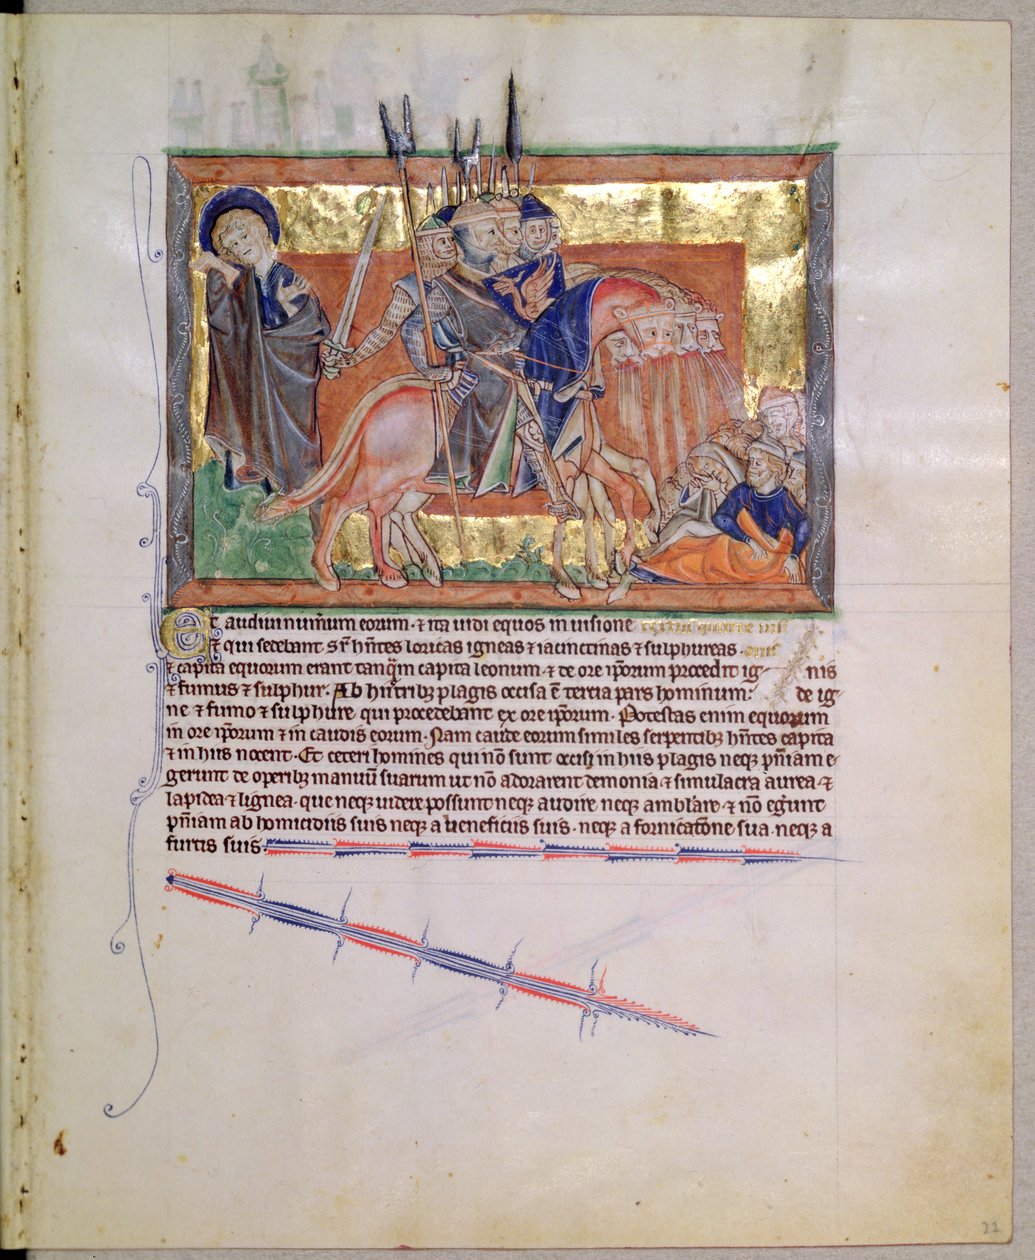 Et audiui num̅um eorum · ⁊ ita uidi equos in uisione
⁊ qui sedebant sr̅ hn̅tes loricas igneas ⁊ iacinctinas ⁊ sulphureas ·
⁊ capita equorum erant tanq̅m capita leonum · ⁊ de ore ip̅orum procedit ig nis
⁊ fumus ⁊ sulphur · Ab hiis tribꝫ plagis occisa e̅ tercia pars hominum : de ig
ne ⁊ fumo ⁊ sulphure qui procedebant ex ore ip̅orum · Potestas enim equorum
in ore ip̅orum ⁊ in caudis eorum · Nam caude eorum similes serpentibꝫ hn̅tes capita
⁊ in hiis nocent · Et ceteri homines qui no̅ sunt occisi in hiis plagis neqꝫ pn̅iam e
gerunt de operibꝫ manuu̅ suarum ut no̅ adorarent demonia ⁊ simulacra aurea ⁊
lapidea ⁊ lignea · que neqꝫ uidere possunt neqꝫ audire neqꝫ ambl̅are · ⁊ no̅ eg̅unt
pn̅iam ab homicidiis suis neqꝫ a ueneficiis suis · neqꝫ a fornicat̅one sua · neqꝫ a
furtis suis ·
22